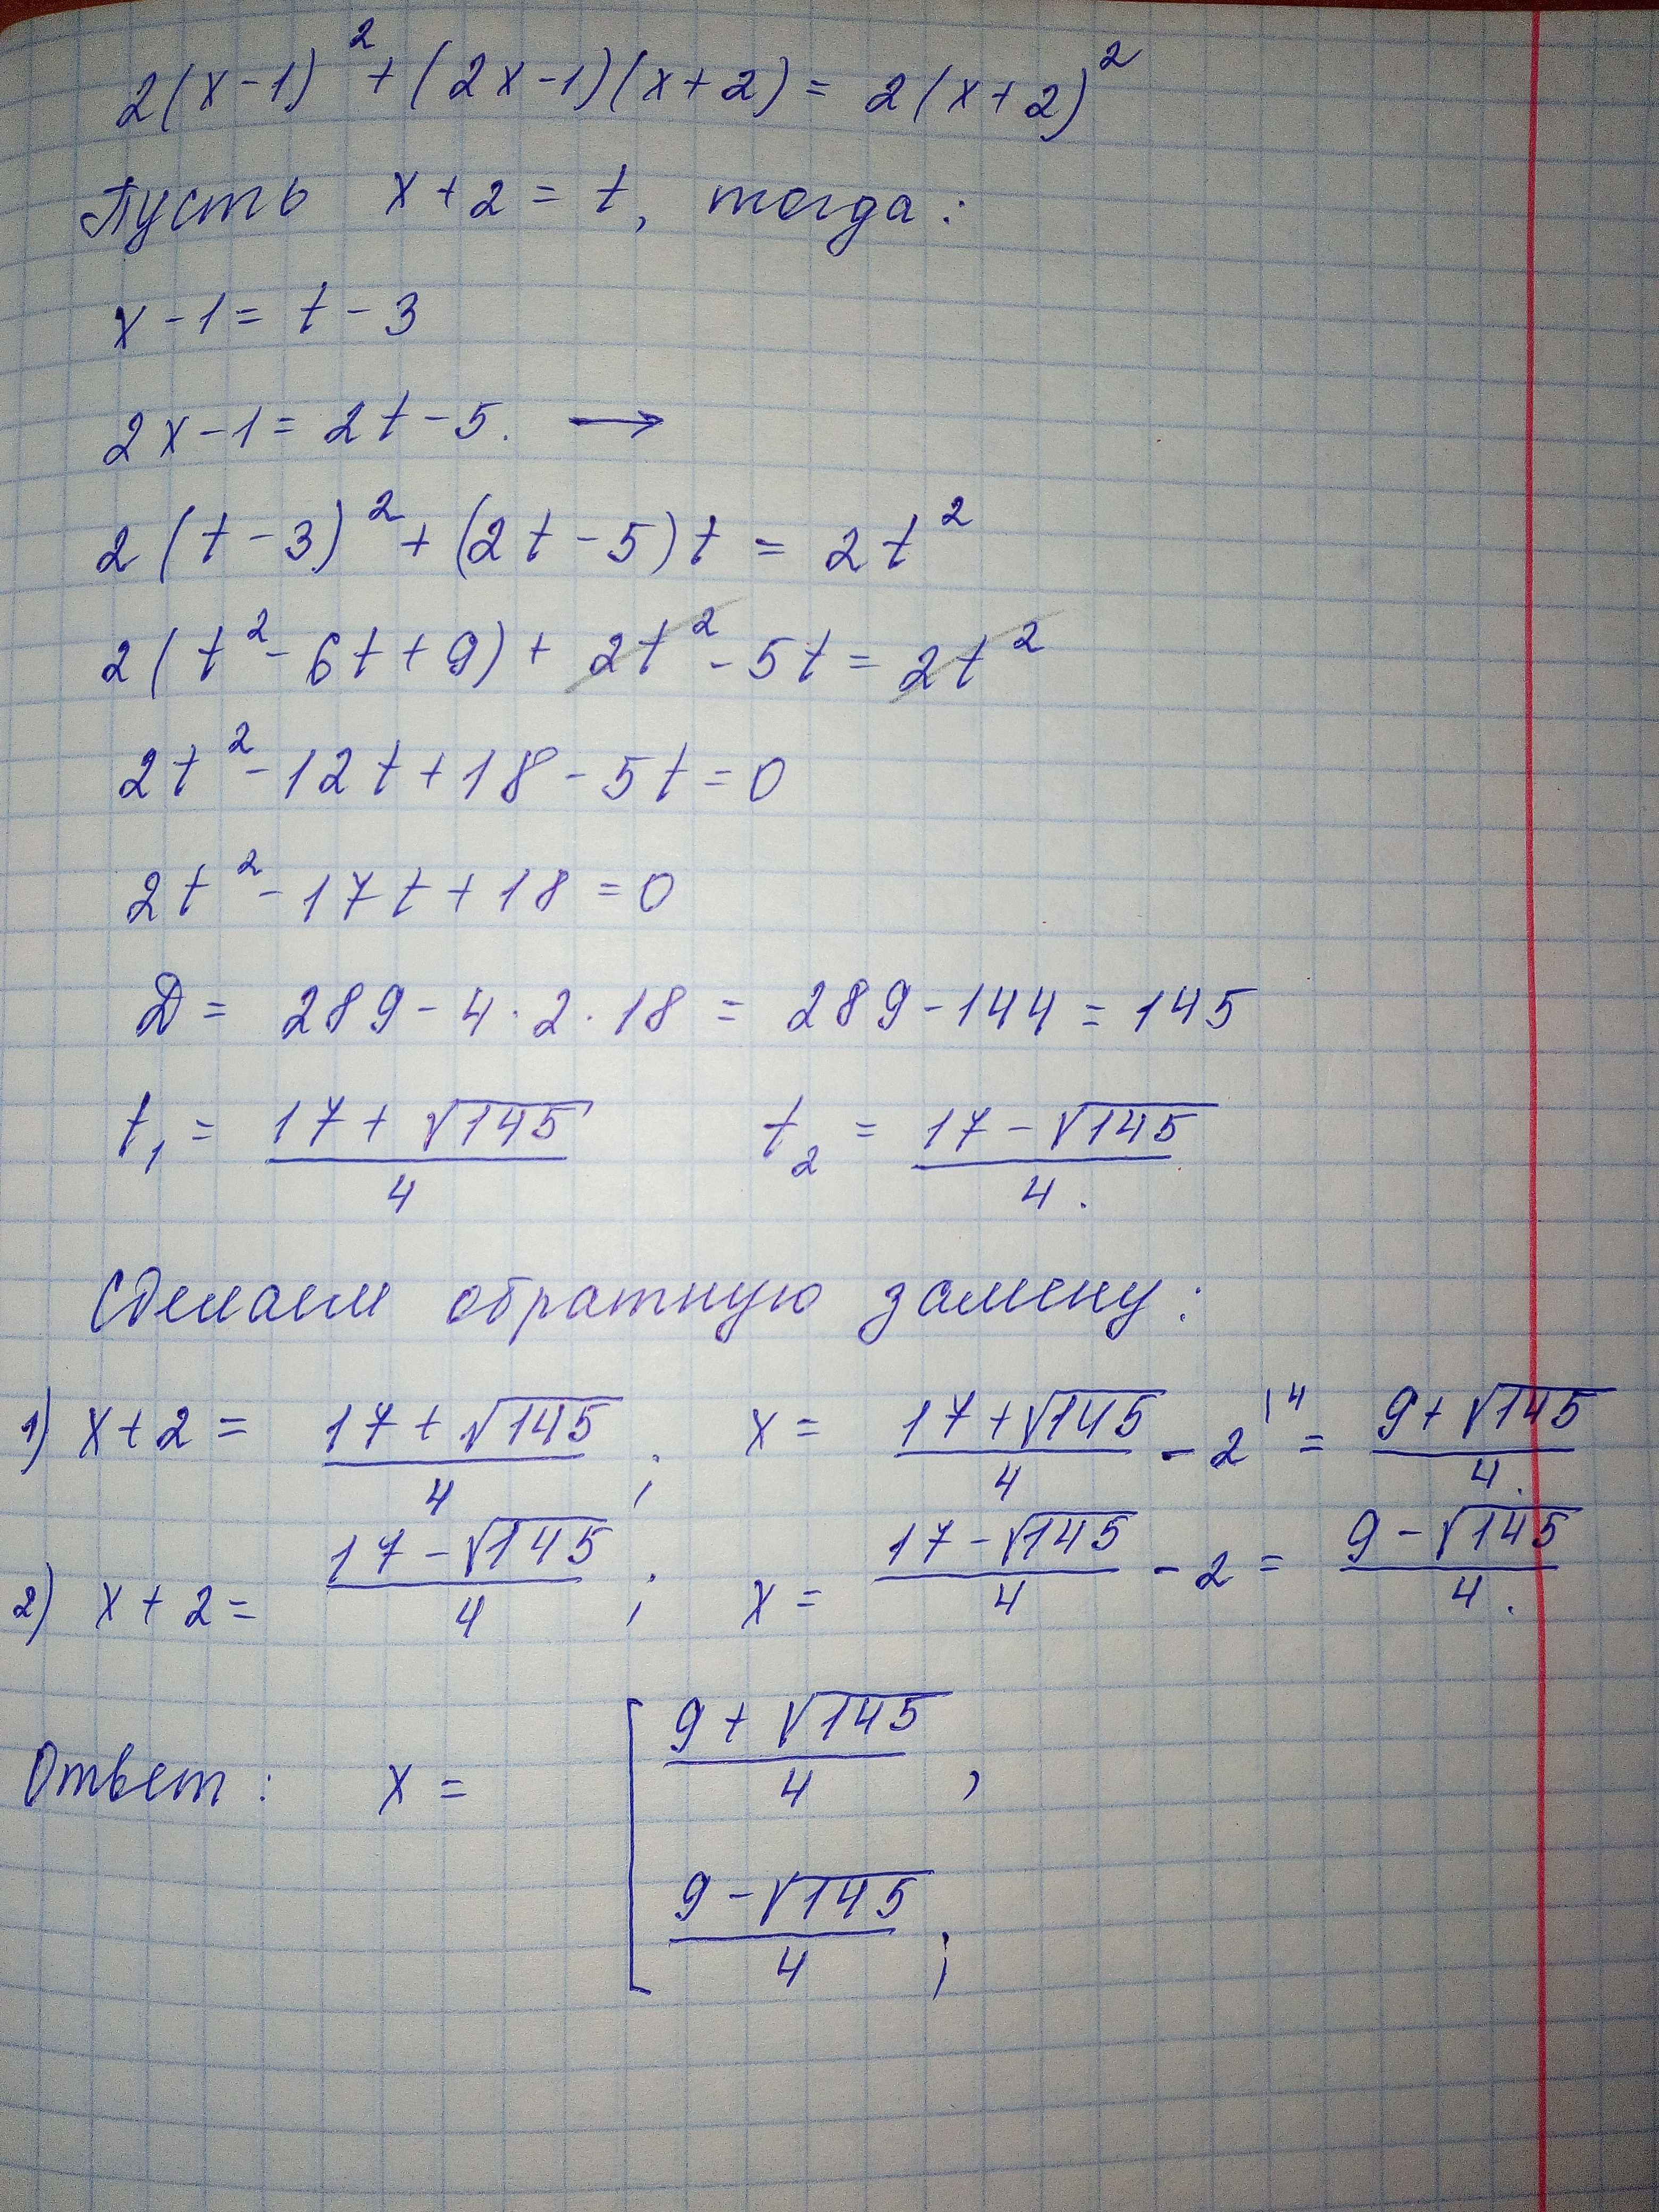 2(x-1)² + (2x-1)(x+2) = 2(x+2)²
Пусть x+2 = t, тогда:
x-1 = t-3
2x-1 = 2t-5. →
2(t-3)² + (2t-5)t = 2t²
2(t²-6t+9) + 2t² - 5t = 2t²
2t² - 12t + 18 - 5t = 0
2t² - 17t + 18 = 0
D = 289 - 4·2·18 = 289 - 144 = 145
t₁ = (17+√145)/4 t₂ = (17-√145)/4.
Сделаем обратную замену:
1) x+2 = (17+√145)/4 ; x = (17+√145)/4 - 2|⁴ = (9+√145)/4.
2) x+2 = (17-√145)/4 ; x = (17-√145)/4 - 2 = (9-√145)/4.
Ответ: x = [ (9+√145)/4 ,
(9-√145)/4 ;